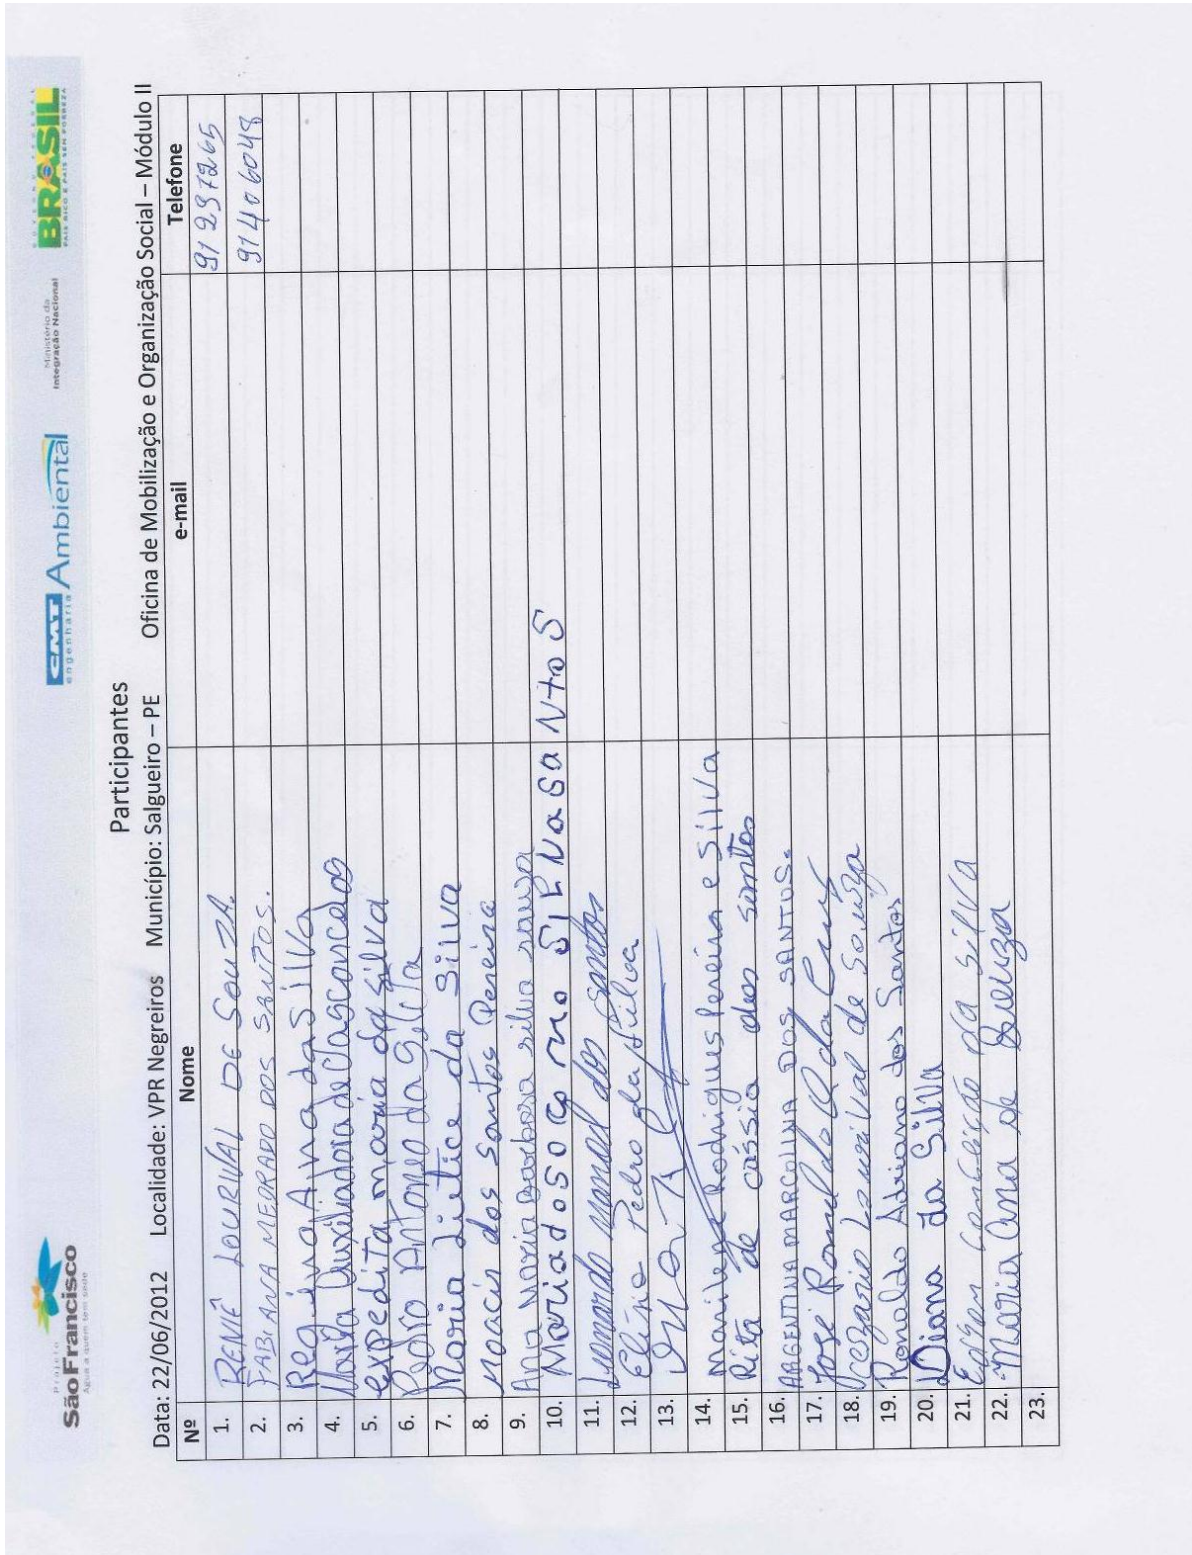 Projeto
São Francisco
Água a quem tem sede
CMT Ambiental
engenharia
Ministério da
Integração Nacional
GOVERNO FEDERAL
BRASIL
PAÍS RICO É PAÍS SEM POBREZA
Participantes
Data: 22/06/2012 Localidade: VPR Negreiros Município: Salgueiro – PE Oficina de Mobilização e Organização Social – Módulo II
Nº Nome e-mail Telefone
1. RENÊ LOURIVAL DE SOUZA. 91237265
2. FABIANCA MEDRADO DOS SANTOS. 91406048
3. Regina Ana da Silva
4. Maria Auxiliadora de Vasconcelos
5. expedita maria da silva
6. Pedro Antonio da Silva
7. Maria Lietice da Silva
8. Moacis dos Santos Pereira
9. Ana Maria Barbosa silva sousa
10. Maria do SoCorro SILVa SaNtoS
11. Leonardo manoel dos santos
12. Pedro da Silva
13.
14. Marilene Rodrigues Pereira e Silva
15. Rita de cássia dos santos
16. ARGENTINA MARCOLINA DOS SANTOS.
17. José Ronaldo da Cruz
18. Lourival de Souza
19. Ronaldo Adriano dos Santos
20. Diana da Silva
21. Edson Conceição da Silva
22. Maria Ana de Souza
23.